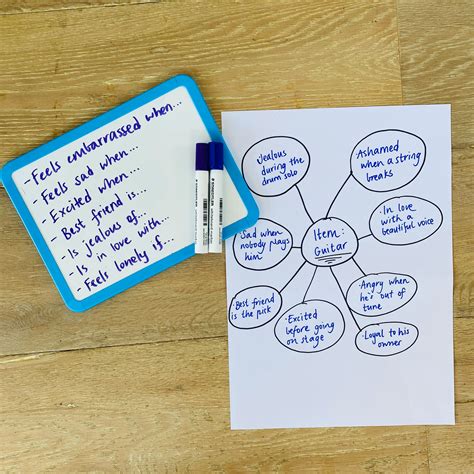 - Feels embarrassed when...
- Feels sad when...
- Excited when...
- Best friend is...
- Is jealous of...
- Is in love with...
- Feels lonely if...
STAEDTLER
Item:
Guitar
·Jealous
during the
drum solo
Ashamed
when a string
breaks
·In love
with a
beautiful voice
·Angry when
he's out of
tune
·Loyal to his
owner
·Excited
before going
on stage
·Best friend
is the pick
·Sad when
nobody plays
him